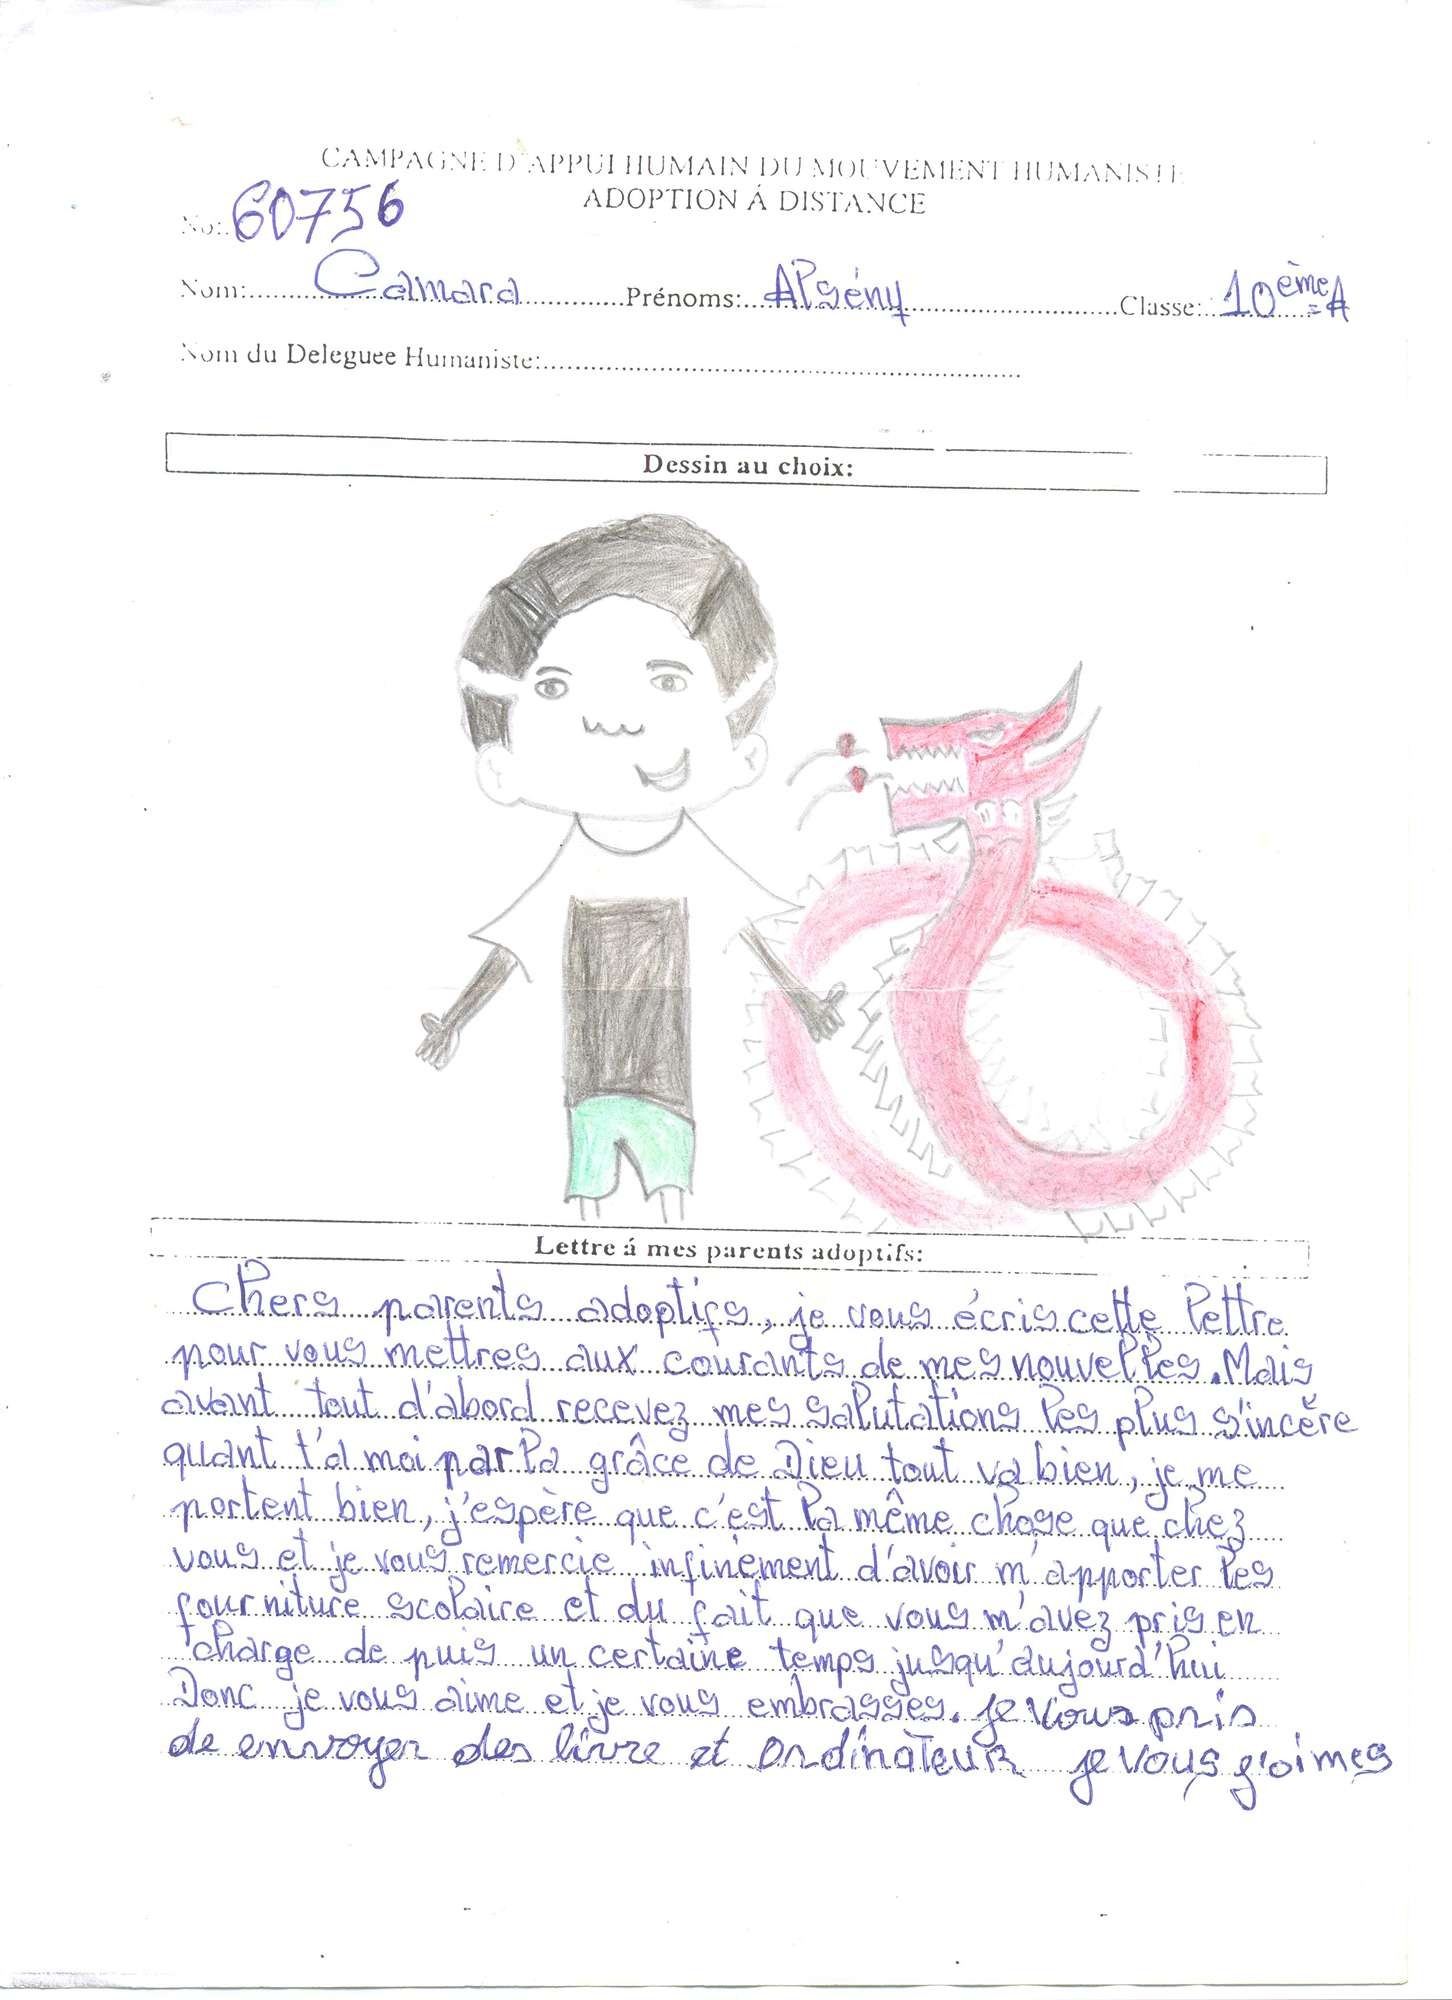 CAMPAGNE D'APPUI HUMAIN DU MOUVEMENT HUMANISTE
ADOPTION Á DISTANCE
No: 60756
Nom: Camara Prénoms: Alsény Classe: 10ème A
Nom du Deleguee Humaniste:
Dessin au choix:
Lettre á mes parents adoptifs:
Chers parents adoptifs, je vous écris cette lettre
pour vous mettres aux courants de mes nouvelles. Mais
avant tout d'abord recevez mes salutations les plus s'incère
quant t'a moi par la grâce de Dieu tout va bien, je me
portent bien, j'espère que c'est la même chose que chez
vous et je vous remercie infinement d'avoir m'apporter les
fourniture scolaire et du fait que vous m'avez pris en
charge de puis un certaine temps jusqu'aujourd'hui
Donc je vous aime et je vous embrasses. je vous pris
de envoyer des livre et ordinateur je vous